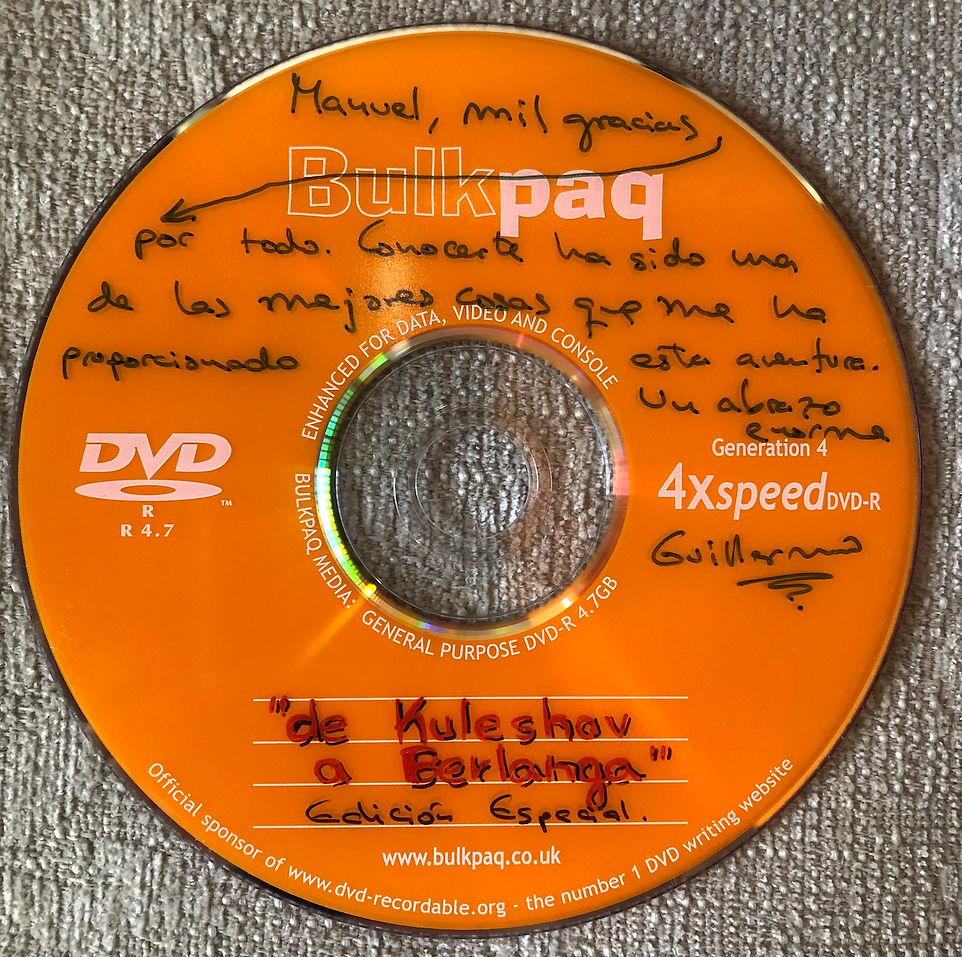 Manuel, mil gracias,
Bulkpaq
por todo. Conocerte ha sido una
de las mejores cosas que me ha
proporcionado esta aventura.
Un abrazo
enorme
ENHANCED FOR DATA, VIDEO AND CONSOLE
DVD
TM
R
R 4.7
Generation 4
4xspeedDVD-R
Guillermo
BULKPAQ MEDIA: GENERAL PURPOSE DVD-R 4.7GB
"de Kuleshov
a Berlanga"
Edición Especial.
www.bulkpaq.co.uk
Official sponsor of www.dvd-recordable.org - the number 1 DVD writing website